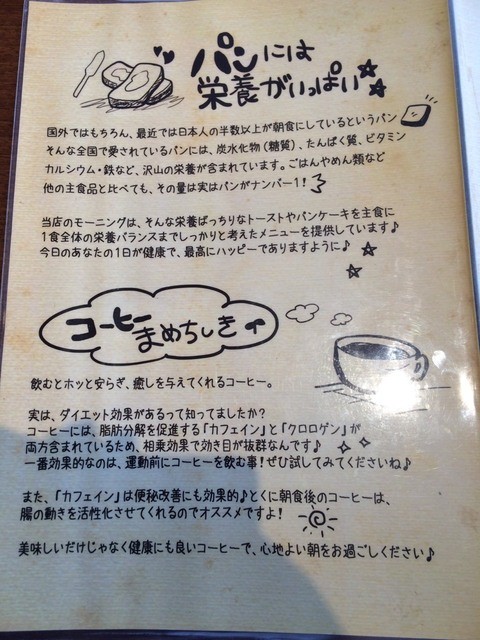 パンには
栄養がいっぱい
国外ではもちろん、最近では日本人の半数以上が朝食にしているというパン
そんな全国で愛されているパンには、炭水化物(糖質)、たんぱく質、ビタミン
カルシウム・鉄など、沢山の栄養が含まれています。ごはんやめん類など
他の主食品と比べても、その量は実はパンがナンバー1!
当店のモーニングは、そんな栄養ばっちりなトーストやパンケーキを主食に
1食全体の栄養バランスまでしっかりと考えたメニューを提供しています♪
今日のあなたの1日が健康で、最高にハッピーでありますように♪
コーヒー
まめちしき
飲むとホッと安らぎ、癒しを与えてくれるコーヒー。
実は、ダイエット効果があるって知ってましたか?
コーヒーには、脂肪分解を促進する「カフェイン」と「クロロゲン」が
両方含まれているため、相乗効果で効き目が抜群なんです♪
一番効果的なのは、運動前にコーヒーを飲む事!ぜひ試してみてくださいね♪
また、「カフェイン」は便秘改善にも効果的♪とくに朝食後のコーヒーは、
腸の動きを活性化させてくれるのでオススメですよ!
美味しいだけじゃなく健康にも良いコーヒーで、心地よい朝をお過ごしください♪